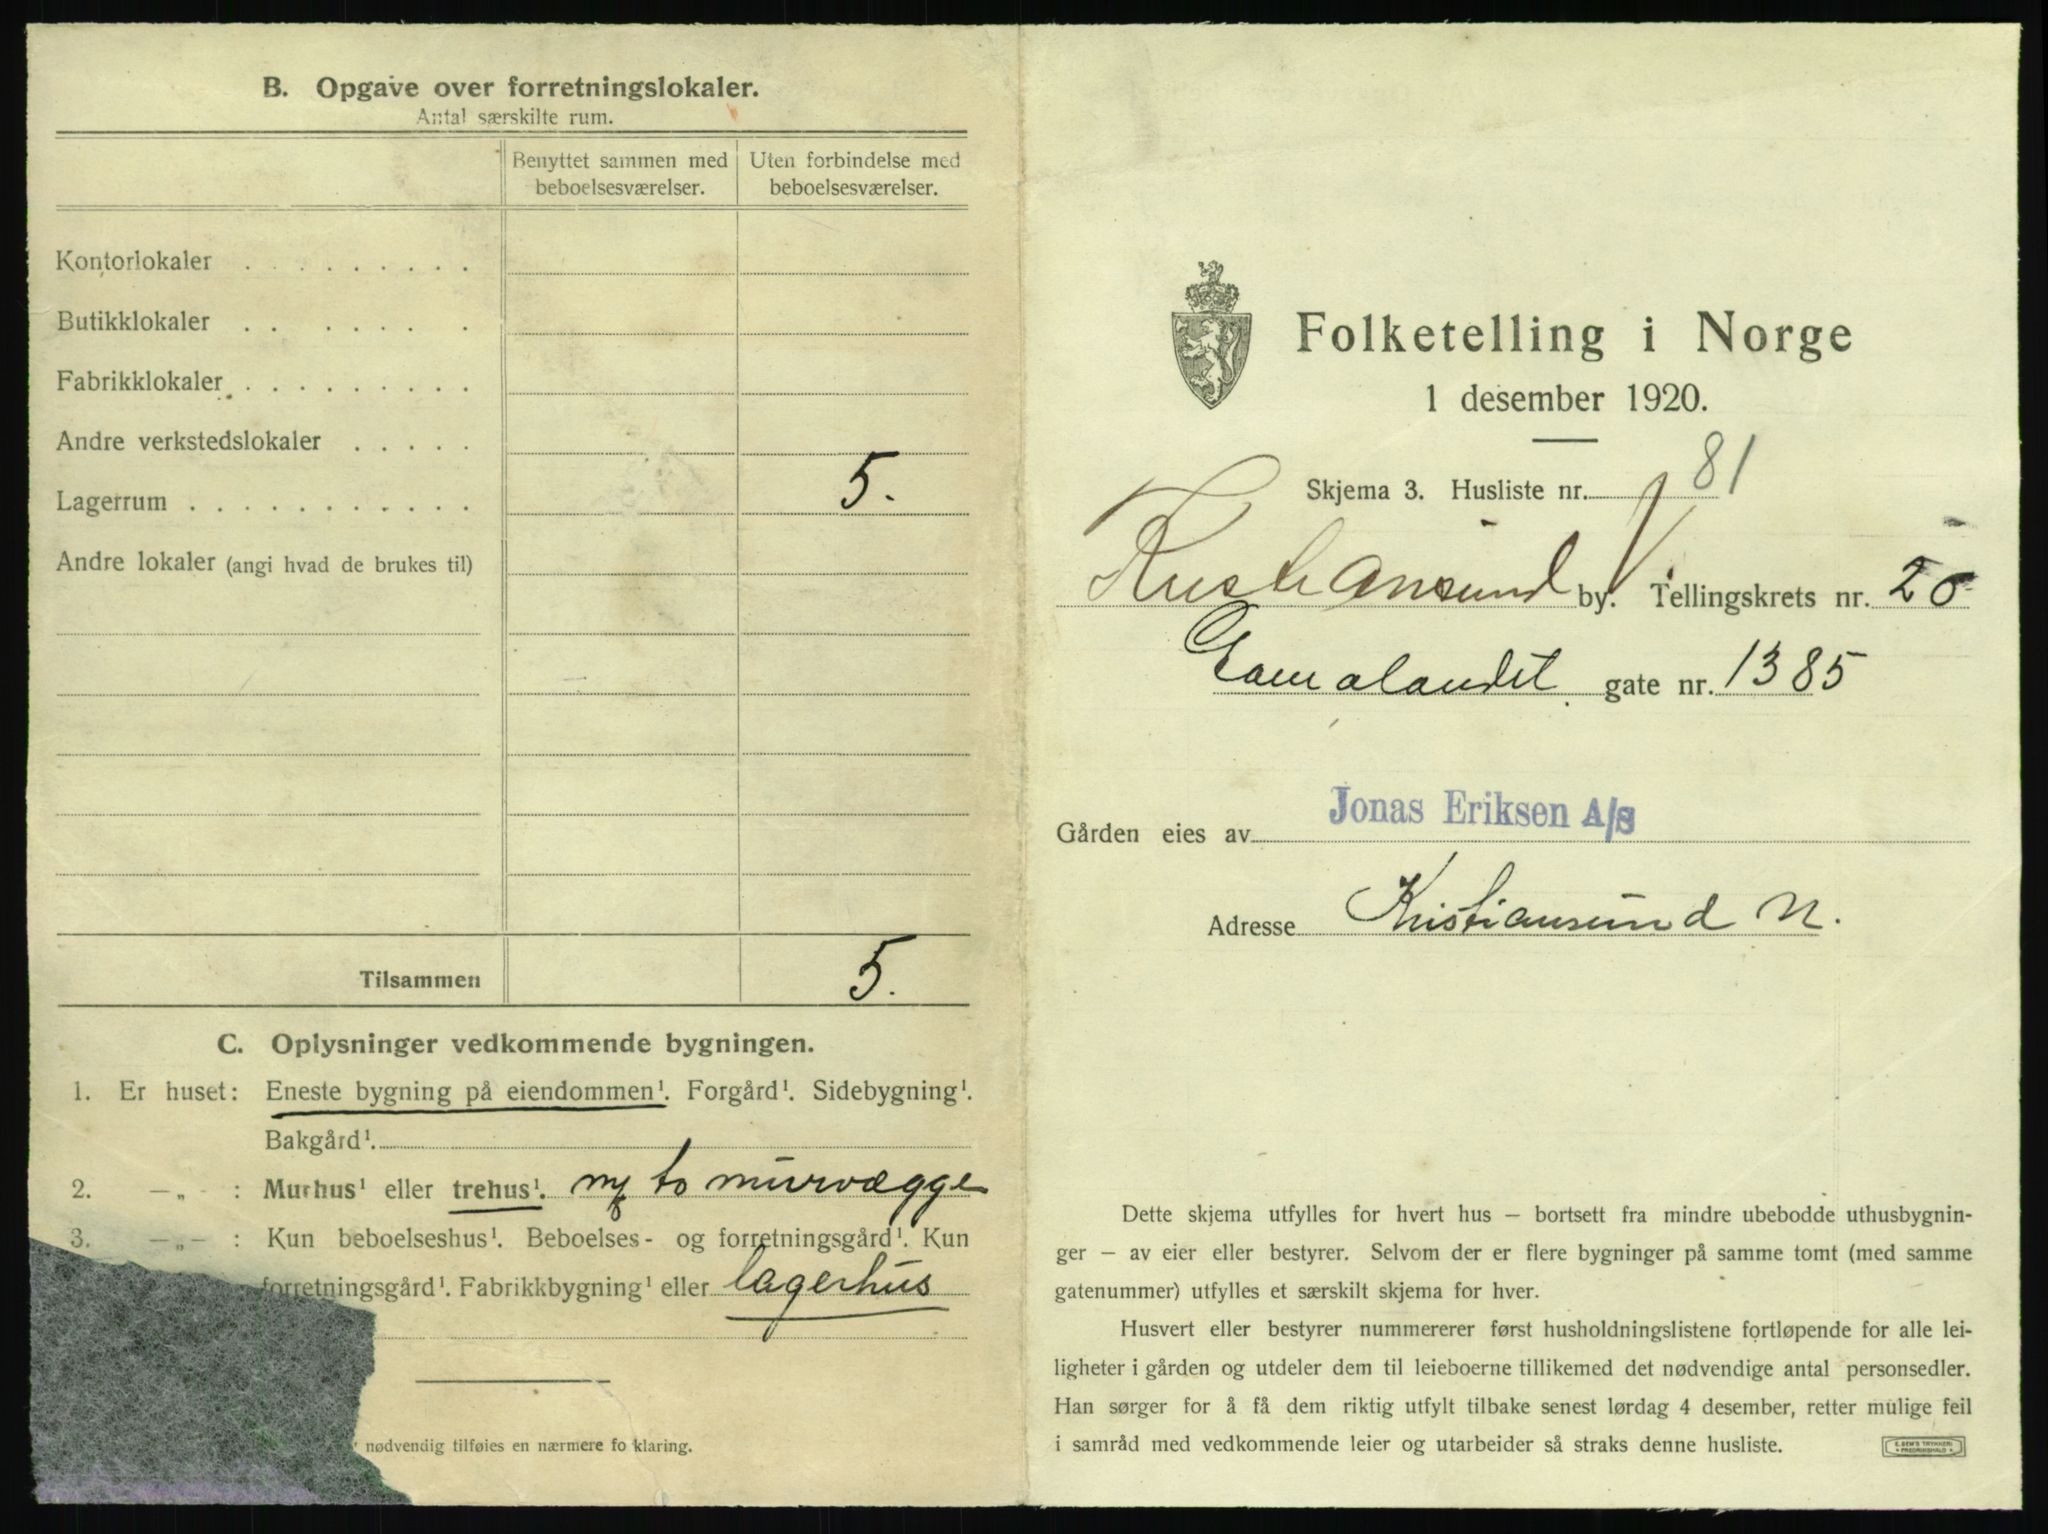 B. Opgave over forretningslokaler.
Antal særskilte rum.
Benyttet sammen med beboelsesværelser.
Uten forbindelse med beboelsesværelser.
Kontorlokaler . . . . . . . . .
Butikklokaler . . . . . . .
Fabrikklokaler . . . . . . . . .
Andre verkstedslokaler . . . . .
Lagerrum . . . . . . . . . . . . 5.
Andre lokaler (angi hvad de brukes til)
Tilsammen 5.
C. Oplysninger vedkommende bygningen.
1. Er huset: Eneste bygning på eiendommen¹. Forgård¹. Sidebygning¹.
Bakgård¹.
2. —„— : Murhus¹ eller trehus¹. to murvægge
3. —„— : Kun beboelseshus¹. Beboelses- og forretningsgård¹. Kun
forretningsgård¹. Fabrikkbygning¹ eller lagerhus
nødvendig tilføies en nærmere fo klaring.
Folketelling i Norge
1 desember 1920.
Skjema 3. Husliste nr. 81
Kristiansund by. Tellingskrets nr. 20
Gomalandet gate nr. 1385
Gården eies av Jonas Eriksen A/S
Adresse Kristiansund N.
Dette skjema utfylles for hvert hus – bortsett fra mindre ubebodde uthusbygnin-
ger – av eier eller bestyrer. Selvom der er flere bygninger på samme tomt (med samme
gatenummer) utfylles et særskilt skjema for hver.
Husvert eller bestyrer nummererer først husholdningslistene fortløpende for alle lei-
ligheter i gården og utdeler dem til leieboerne tillikemed det nødvendige antal personsedler.
Han sørger for å få dem riktig utfylt tilbake senest lørdag 4 desember, retter mulige feil
i samråd med vedkommende leier og utarbeider så straks denne husliste.
E. SEM'S TRYKKERI
FREDRIKSHALD